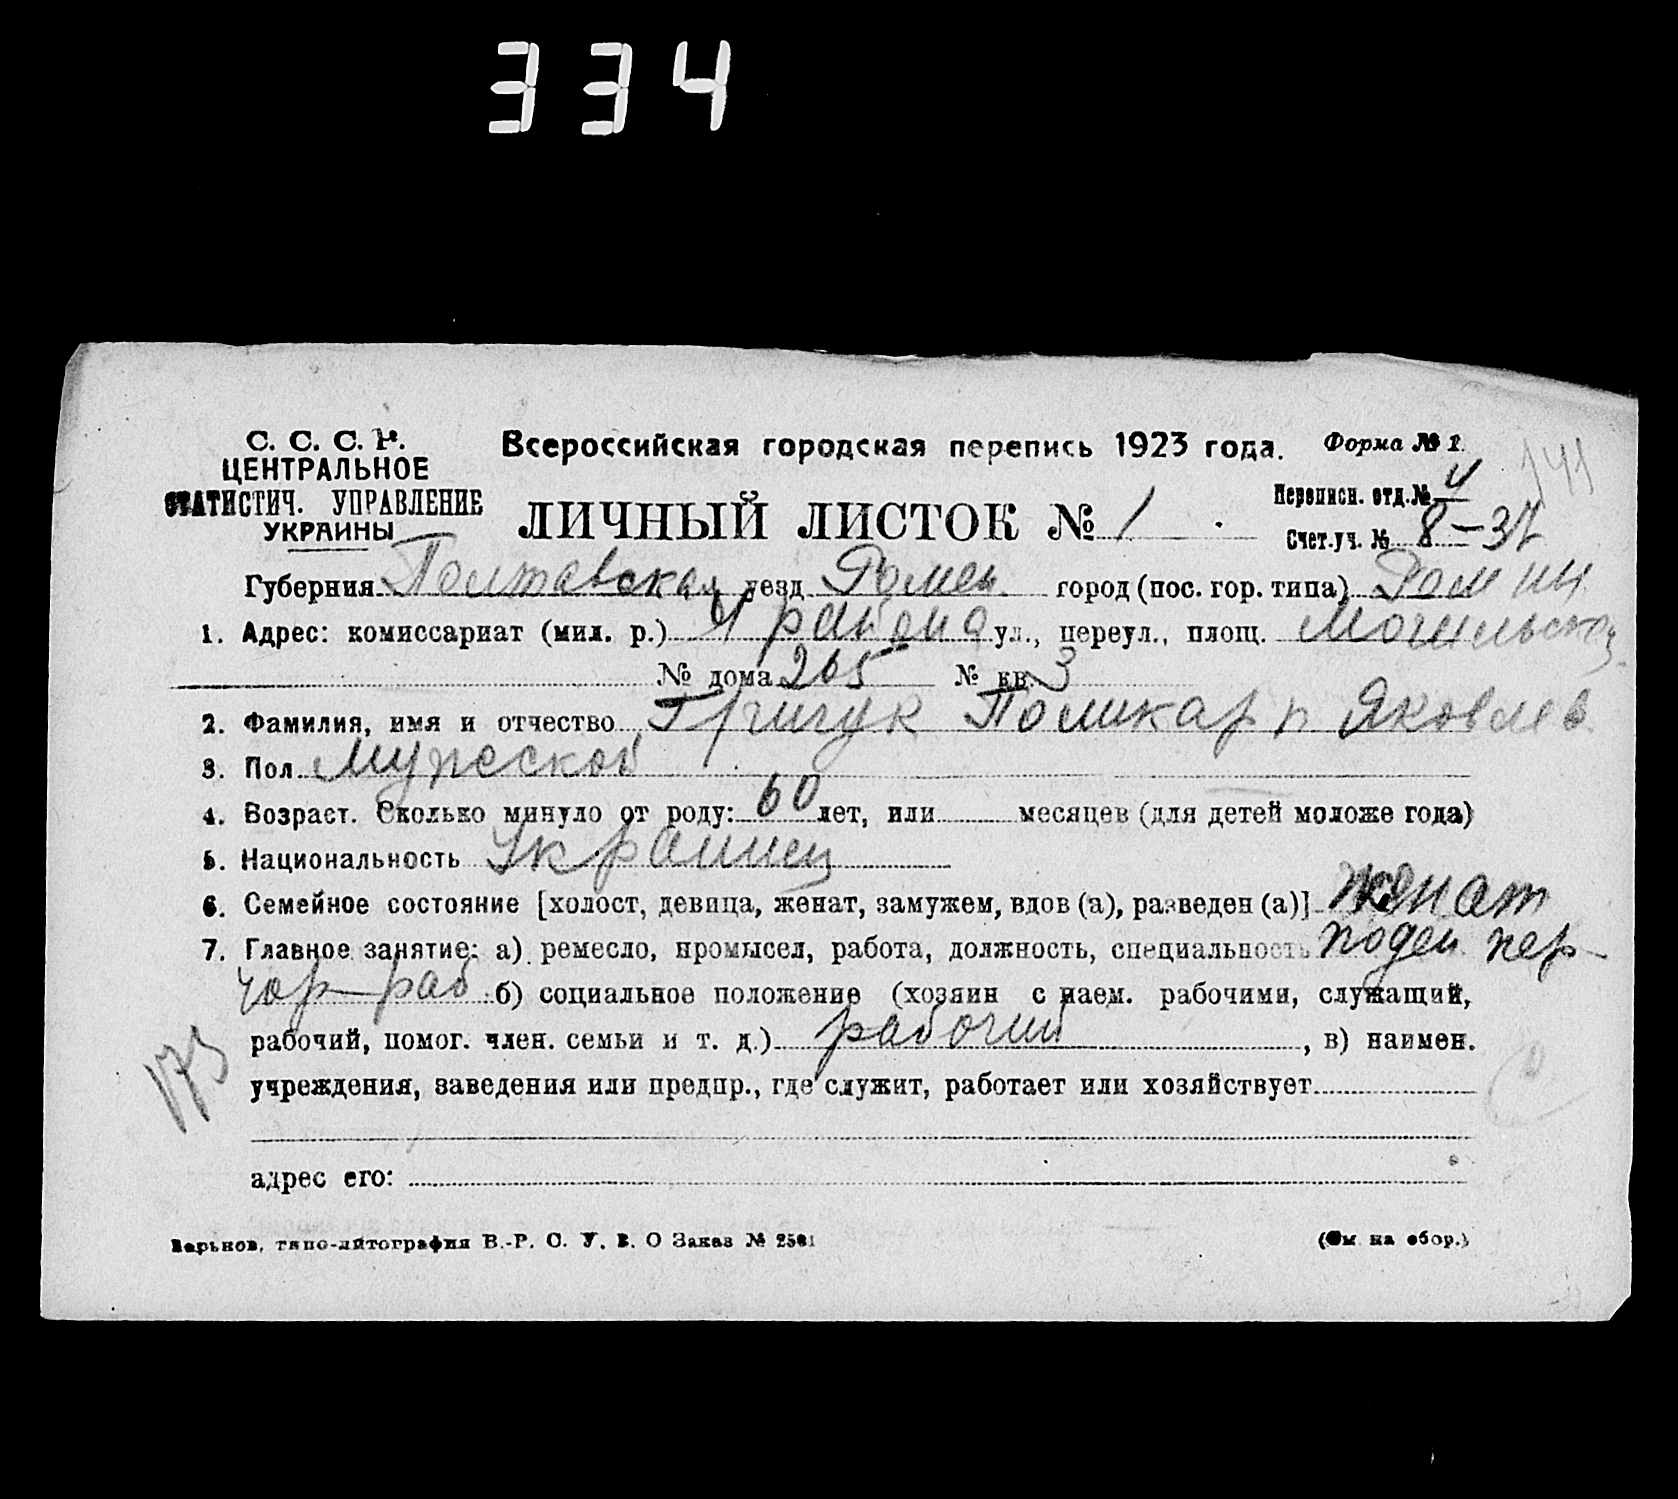 334
С. С. С. Р.
ЦЕНТРАЛЬНОЕ
СТАТИСТИЧ. УПРАВЛЕНИЕ
УКРАИНЫ
Всероссийская городская перепись 1923 года. Форма № 1.
141
ЛИЧНЫЙ ЛИСТОК № 1
Переписн. отд. № 4
Счет. уч. № 8–37
Губерния Полтавская уезд Ромен. город (пос. гор. типа) Ромны
1. Адрес: комиссариат (мил. р.) района ул., переул., площ.
№ дома 265 № кв. 3
2. Фамилия, имя и отчество Поликарп Яковлев.
3. Пол Мужской
4. Возраст. Сколько минуло от роду: 60 лет, или месяцев (для детей моложе года)
5. Национальность Украинец
6. Семейное состояние [холост, девица, женат, замужем, вдов (а), разведен (а)] женат
7. Главное занятие: а) ремесло, промысел, работа, должность, специальность поден
чор–раб б) социальное положение (хозяин с наем. рабочими, служащий,
рабочий, помог. член. семьи и т. д.) рабочий , в) наимен.
173
учреждения, заведения или предпр., где служит, работает или хозяйствует
адрес его:
Харьков, типо-литография В.-Р. С. У. В. О Заказ № 2581 (См. на обор.)